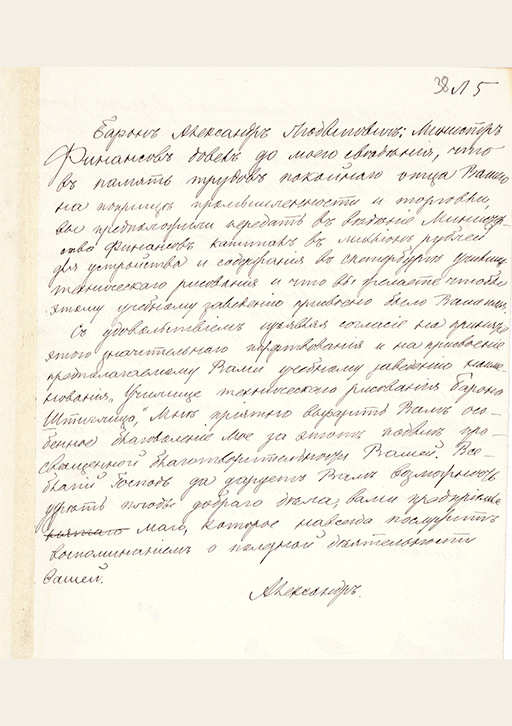 38 Л 5
Баронъ Александръ Людвиговичъ! Министръ
Финансовъ довелъ до моего свѣдѣнія, что
въ память трудовъ покойнаго отца Вашего
на поприщѣ промышленности и торговли,
вы предположили передать въ вѣдѣніе Министер-
ства Финансовъ капиталъ въ милліонъ рублей
для устройства и содержанія въ С.петербургѣ училища
техническаго рисованія и что вы желаете чтобы
этому учебному заведенію присвоено было Ваше имя.
Съ удовольствіемъ изъявляя согласіе на принятіе
этого значительнаго пожертвованія и на присвоеніе
предполагаемому Вами учебному заведенію наиме-
нованія „Училище техническаго рисованія Барона
Штиглица," Мнѣ пріятно выразить Вамъ осо-
бенное благоволеніе Мое за этотъ подвигъ про-
свѣщенной благотворительности Вашей. Все-
благій Господь да даруетъ Вамъ возможность
узрѣть плоды добраго дѣла, вами предпринят-
маго, которое навсегда послужитъ
воспоминаніемъ о полезной дѣятельности
Вашей.
Александръ.